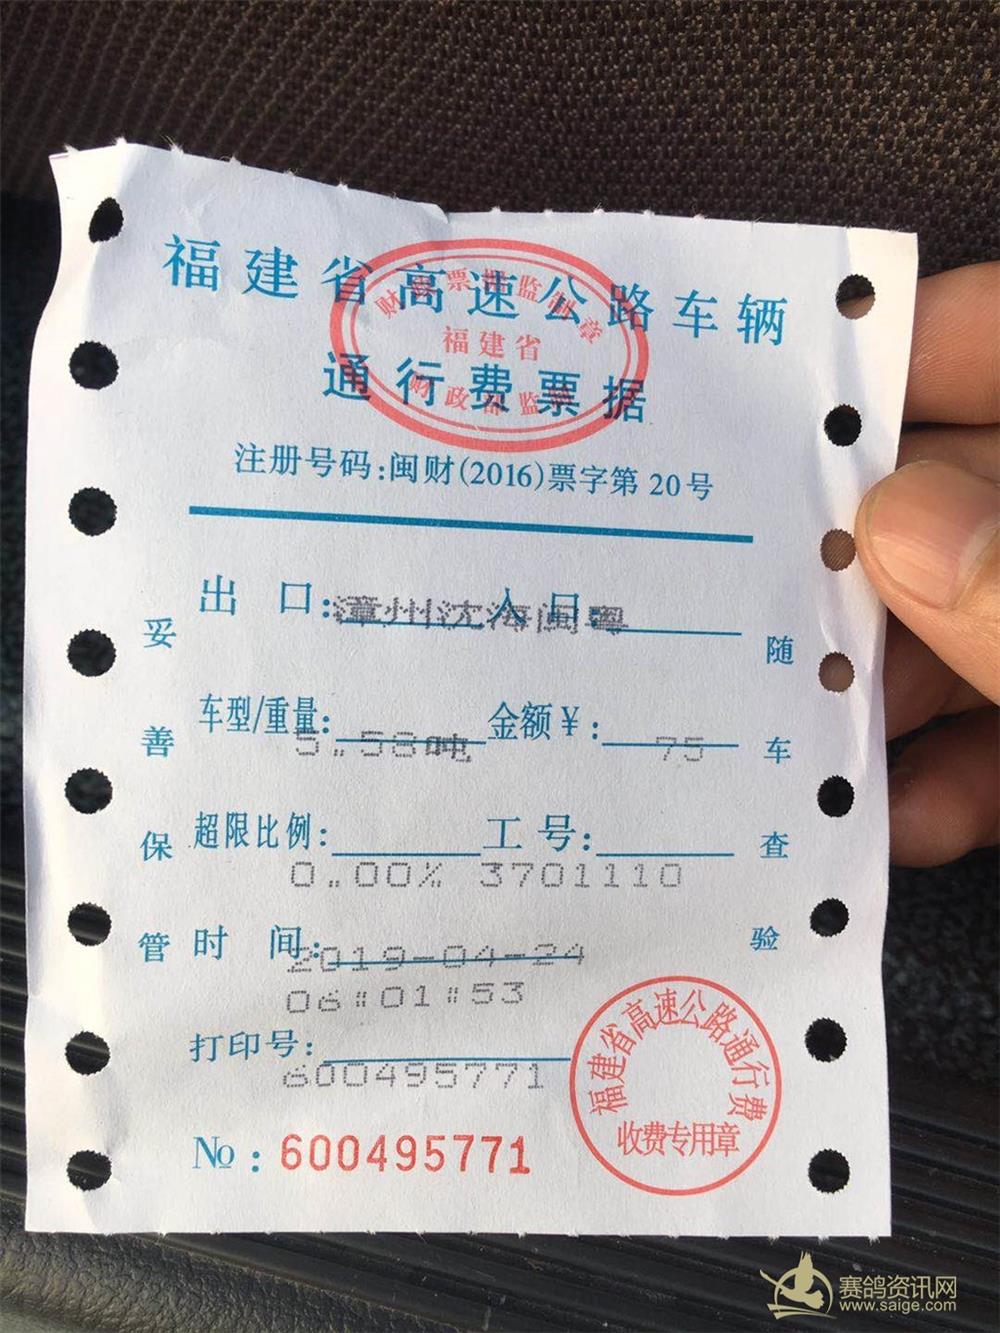 福建省高速公路车辆
通行费票据
财政票据监制章
福建省
财政部监制
注册号码:闽财(2016)票字第 20号
出 口: 入 口:
漳州沈海闽粤
车型/重量: 金额￥:
5.58吨 75
超限比例: 工 号:
0.00% 3701110
时 间:
2019-04-24
06:01:53
打印号:
600495771
№: 600495771
妥善保管
随车查验
福建省高速公路通行费
收费专用章
赛鸽资讯网
www.saige.com